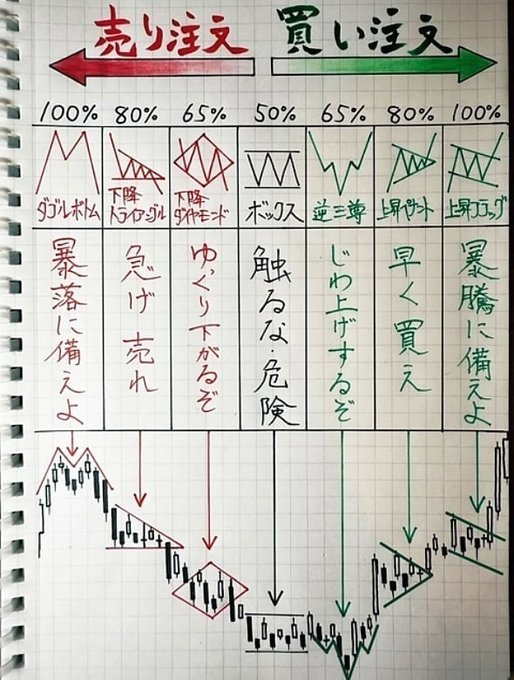 売り注文 買い注文
100% 80% 65% 50% 65% 80% 100%
ダブルボトム
下降
トライアングル
下降
ダイヤモンド
ボックス
逆三尊
上昇ペナント
上昇フラッグ
暴落に備えよ
急げ 売れ
ゆっくり下がるぞ
触るな・危険
じわ上げするぞ
早く買え
暴騰に備えよ